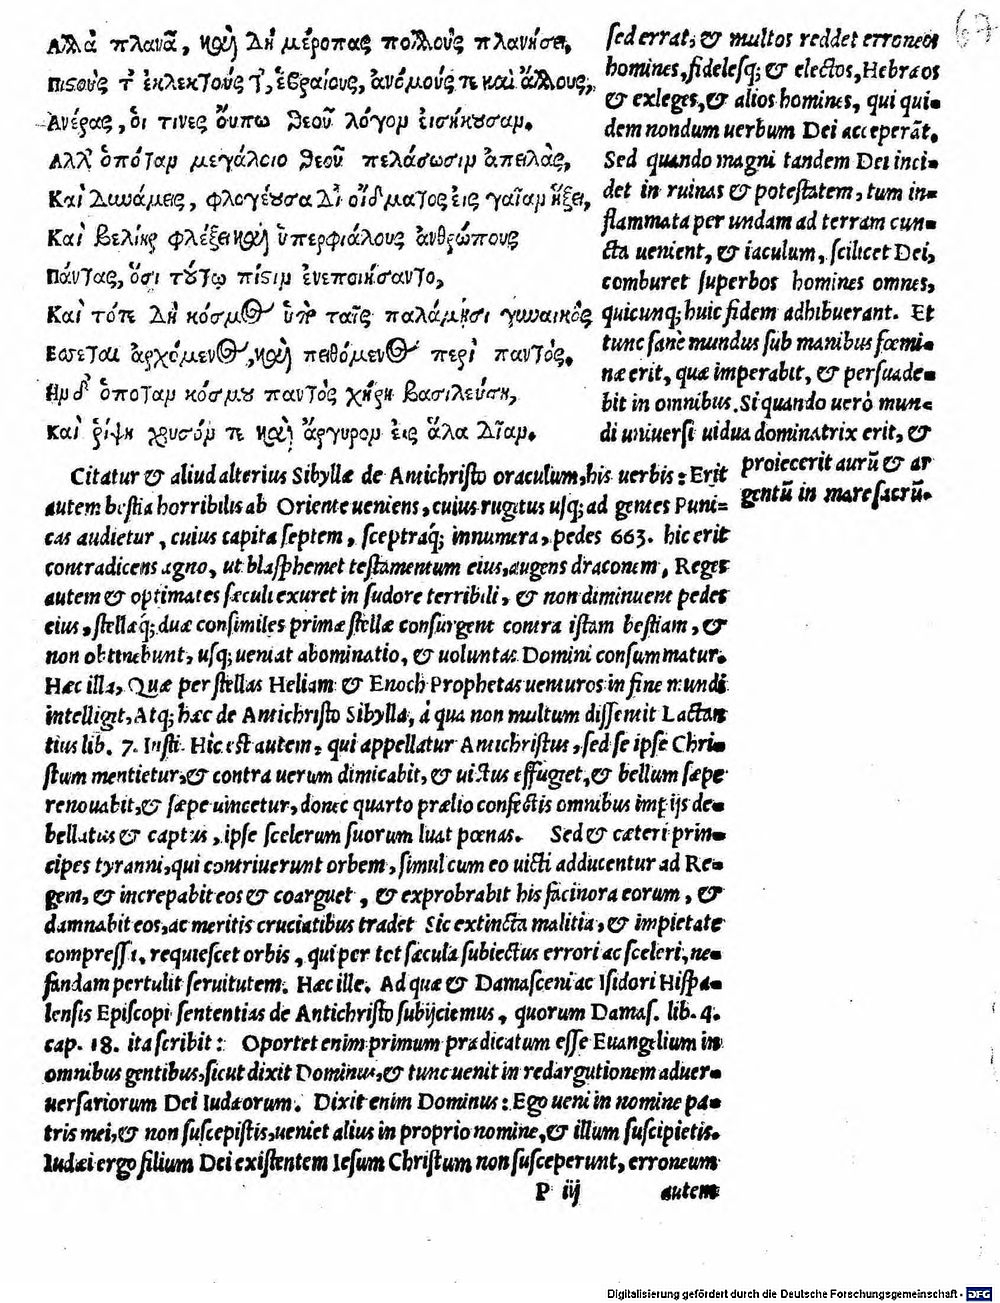 Αλλὰ πλανᾷ, καὶ δὴ μέροπας πολλοὺς πλανήσει,
Πιστοὺς τ' ἐκλεκτούς τ', ἑβραίους, ἀνόμους τε καὶ ἄλλους,
Ἀνέρας, οἵ τινες οὔπω θεοῦ λόγον εἰσήκουσαν.
Αλλ' ὁπόταν μεγάλοιο θεοῦ πελάσωσιν ἀπειλὰς,
Καὶ δυνάμεις, φλογέουσα δι' οἴδματος εἰς γαῖαν ἥξει,
Καὶ βέλεσι φλέξει καὶ ὑπερφιάλους ἀνθρώπους
Πάντας, ὅσοι τούτῳ πίστιν ἐνεποιήσαντο,
Καὶ τότε δὴ κόσμος ὑπὸ ταῖς παλάμῃσι γυναικὸς
Εσσεται ἀρχόμενος, καὶ πειθόμενος περὶ παντός.
Ηνδ' ὁπόταν κόσμου παντὸς χήρη βασιλεύσῃ,
Καὶ ῥίψῃ χρυσόν τε καὶ ἄργυρον εἰς ἅλα δῖαν.
sed errat, & multos reddet erroneos
homines, fidelesq; & electos, Hebræos
& exleges, & alios homines, qui qui-
dem nondum uerbum Dei acceperāt.
Sed quando magni tandem Dei inci-
det in ruinas & potestatem, tum in-
flammata per undam ad terram cun-
cta uenient, & iaculum, scilicet Dei,
comburet superbos homines omnes,
quicunq; huic fidem adhibuerant. Et
tunc sanè mundus sub manibus fœmi-
næ erit, quæ imperabit, & persuade-
bit in omnibus. Si quando uerò mun-
di uniuersi uidua dominatrix erit, &
proiecerit aurū & ar
gentū in mare sacrū.
Citatur & aliud alterius Sibyllæ de Antichristo oraculum, his uerbis: Erit
autem bestia horribilis ab Oriente ueniens, cuius rugitus usq; ad gentes Puni-
cas audietur, cuius capita septem, sceptraq́; innumera, pedes 663. hic erit
contradicens agno, ut blasphemet testamentum eius, augens draconem, Reges
autem & optimates sæculi exuret in sudore terribili, & non diminuent pedes
eius, stellæq́; duæ consimiles primæ stellæ consurgent contra istam bestiam, &
non obtinebunt, usq; ueniat abominatio, & uoluntas Domini consummatur.
Hæc illa, Quæ per stellas Heliam & Enoch Prophetas uenturos in fine mundi
intelligit, Atq; hæc de Antichristo Sibylla, à qua non multum dissentit Lactan
tius lib. 7. Insti. Hic est autem, qui appellatur Antichristus, sed se ipse Chri-
stum mentietur, & contra uerum dimicabit, & uictus effugiet, & bellum sæpe
renouabit, & sæpe uincetur, donec quarto prælio confectis omnibus impijs de-
bellatus & captus, ipse scelerum suorum luat pœnas. Sed & cæteri prin-
cipes tyranni, qui contriuerunt orbem, simul cum eo uicti adducentur ad Re-
gem, & increpabit eos & coarguet, & exprobrabit his facinora eorum, &
damnabit eos, ac meritis cruciatibus tradet Sic extincta malitia, & impietate
compressa, requiescet orbis, qui per tot sæcula subiectus errori ac sceleri, ne-
fandam pertulit seruitutem. Hæc ille. Ad quæ & Damasceni ac Isidori Hispa-
lensis Episcopi sententias de Antichristo subijciemus, quorum Damas. lib. 4.
cap. 18. ita scribit: Oportet enim primum prædicatum esse Euangelium in
omnibus gentibus, sicut dixit Dominus, & tunc uenit in redargutionem aduer-
uersariorum Dei Iudæorum. Dixit enim Dominus: Ego ueni in nomine pa-
tris mei, & non suscepistis, ueniet alius in proprio nomine, & illum suscipietis.
Iudæi ergo filium Dei existentem Iesum Christum non susceperunt, erroneum
P iij autem
Digitalisierung gefördert durch die Deutsche Forschungsgemeinschaft - DFG